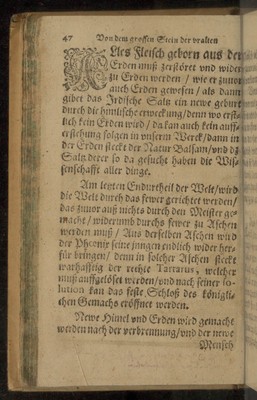 47 Von dem grossen Stein der uralten
ALles Fleisch geborn aus der
Erden muß zerstöret vnd wider
zu Erden werden / wie er zuuor
auch Erden gewesen / als dann
gibet das Irdische Saltz ein newe geburt
durch die himlische erweckung / denn wo erst-
lich kein Erden wird / da kan auch kein auff-
erstehung folgen in vnserm Werck / dann in
der Erden steckt der Natur Balsam / vnd dz
Saltz derer so da gesucht haben die Wis-
senschafft aller dinge.
Am letzten Endurtheil der Welt / wird
die Welt durch das fewer gerichtet werden /
das zuuor auß nichts durch den Meister ge-
macht / widerumb durchs fewer zu Aschen
werden muß / Aus derselben Aschen wird
der Phœnix seine jungen endlich wider her-
für bringen / denn in solcher Aschen steckt
warhafftig der rechte Tartarus, welcher
muß auffgelöset werden / vnd nach seiner so-
lution kan das feste Schloß des königli-
chen Gemachs eröffnet werden.
Newe Himel vnd Erden wird gemacht
werden nach der verbrennung / vnd der newe
Mensch